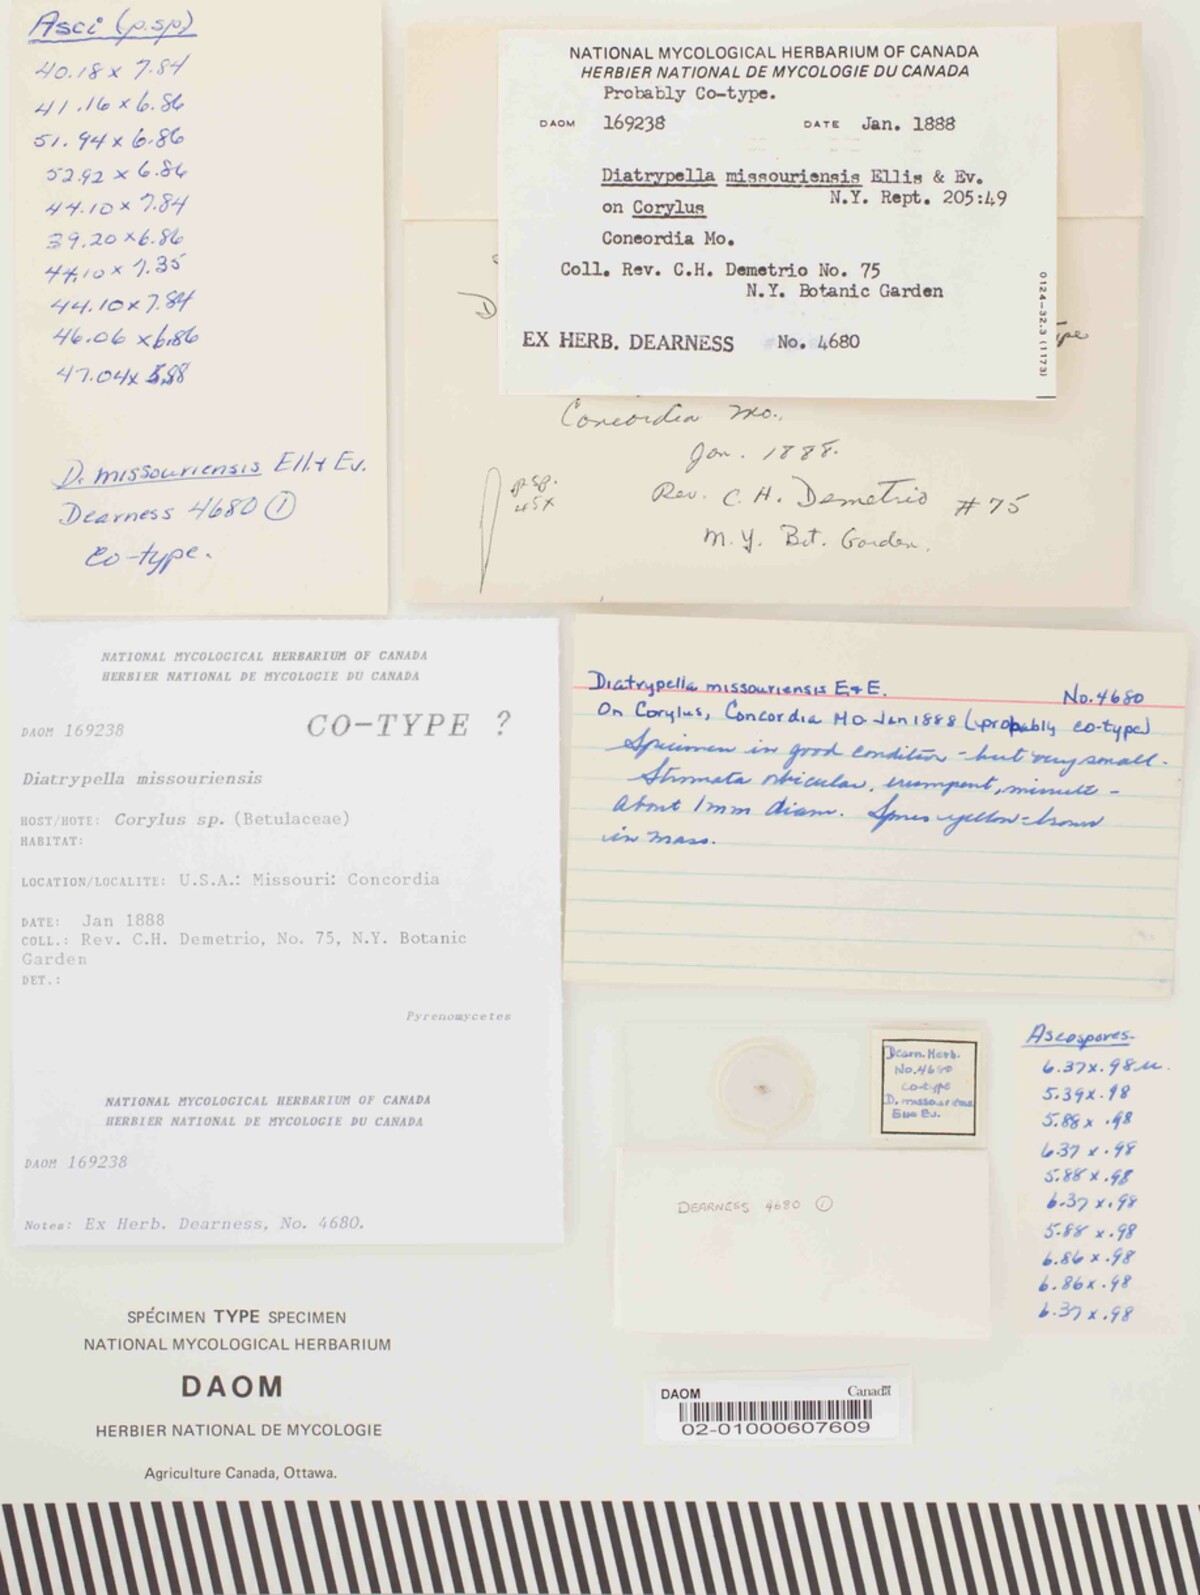 Asci (p.sp)
40.18 x 7.84
41.16 x 6.86
51.94 x 6.86
52.92 x 6.86
44.10 x 7.84
39.20 x 6.86
44.10 x 7.35
44.10 x 7.84
46.06 x 6.86
47.04 x
D. missouriensis Ell. & Ev.
Dearness 4680 ①
Co-type.
NATIONAL MYCOLOGICAL HERBARIUM OF CANADA
HERBIER NATIONAL DE MYCOLOGIE DU CANADA
Probably Co-type.
DAOM 169238 DATE Jan. 1888
Diatrypella missouriensis Ellis & Ev.
N.Y. Rept. 205:49
on Corylus
Coneordia Mo.
Coll. Rev. C.H. Demetrio No. 75
N.Y. Botanic Garden
EX HERB. DEARNESS No. 4680
0124-32.3 (1173)
D
ype
Concordia Mo.
Jan. 1888.
p.sp.
45x
Rev. C. H. Demetrio #75
N.Y. Bot. Garden.
NATIONAL MYCOLOGICAL HERBARIUM OF CANADA
HERBIER NATIONAL DE MYCOLOGIE DU CANADA
DAOM 169238 CO-TYPE ?
Diatrypella missouriensis
HOST/HOTE: Corylus sp. (Betulaceae)
HABITAT:
LOCATION/LOCALITE: U.S.A.: Missouri: Concordia
DATE: Jan 1888
COLL.: Rev. C.H. Demetrio, No. 75, N.Y. Botanic
Garden
DET.:
Pyrenomycetes
NATIONAL MYCOLOGICAL HERBARIUM OF CANADA
HERBIER NATIONAL DE MYCOLOGIE DU CANADA
DAOM 169238
Notes: Ex Herb. Dearness, No. 4680.
Diatrypella missouriensis E & E. No. 4680
On Corylus, Concordia MO Jan 1888 (probably co-type)
Specimen in good condition - but very small.
Stromata orbicular, erumpent, minute -
about 1mm diam. Spores yellow-brown
in mass.
Dearn. Herb.
No. 4680
Co-type
D. missouriensis
Ell & Ev.
DEARNESS 4680 ①
Ascospores.
6.37 x .98 u.
5.39 x .98
5.88 x .98
6.37 x .98
5.88 x .98
6.37 x .98
5.88 x .98
6.86 x .98
6.86 x .98
6.37 x .98
SPÉCIMEN TYPE SPECIMEN
NATIONAL MYCOLOGICAL HERBARIUM
DAOM
HERBIER NATIONAL DE MYCOLOGIE
Agriculture Canada, Ottawa.
DAOM Canada
02-01000607609